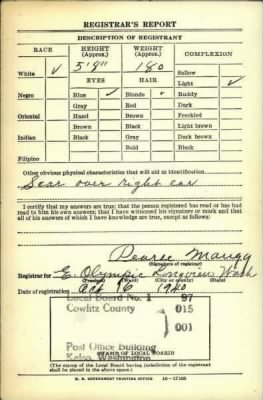 REGISTRAR'S REPORT
DESCRIPTION OF REGISTRANT
RACE HEIGHT (Approx.) WEIGHT (Approx.) COMPLEXION
5'8" 180
White ✓ Sallow
EYES HAIR Light ✓
Negro Blue ✓ Blonde ✓ Ruddy
Gray Red Dark
Oriental Hazel Brown Freckled
Brown Black Light brown
Indian Black Gray Dark brown
Bald Black
Filipino
Other obvious physical characteristics that will aid in identification
Scar over right ear
I certify that my answers are true; that the person registered has read or has had
read to him his own answers; that I have witnessed his signature or mark and that
all of his answers of which I have knowledge are true, except as follows:
Pearce
(Signature of registrar)
Registrar for E. Olympic Longview Wash
(Precinct) (Ward) (City or county) (State)
Date of registration Oct 16 1940
Local Board No. 1 97
Cowlitz County 015
001
Post Office Building
Kelso, Washington
STAMP OF LOCAL BOARD
(The stamp of the Local Board having jurisdiction of the registrant
shall be placed in the above space.)
U. S. GOVERNMENT PRINTING OFFICE 16—17105